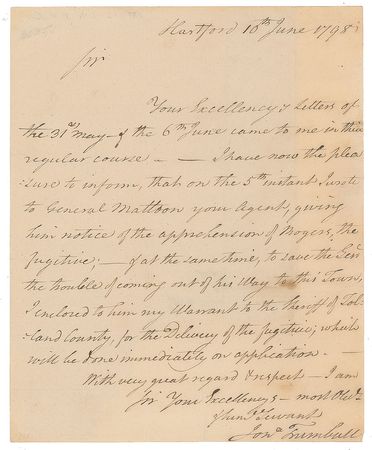 Hartford 16th June 1798
Sir
Your Excellency's Letters of
the 31st may – & the 6th June came to me in their
regular course — I have now the plea
:sure to inform, that on the 5th instant I wrote
to General Mattoon your Agent, giving
him notice of the apprehension of Rogers, the
fugitive: — & at the same time, to save the Genl
the trouble of coming out of his Way to this Town,
I enclosed to him my Warrant to the Sheriff of Tol-
:land County, for the Delivery of the fugitive; which
will be done immediately on application. —
With very great regard & respect – I am
Sir Your Excellencys – most Obedt
& hum Servant
Jona Trumbull